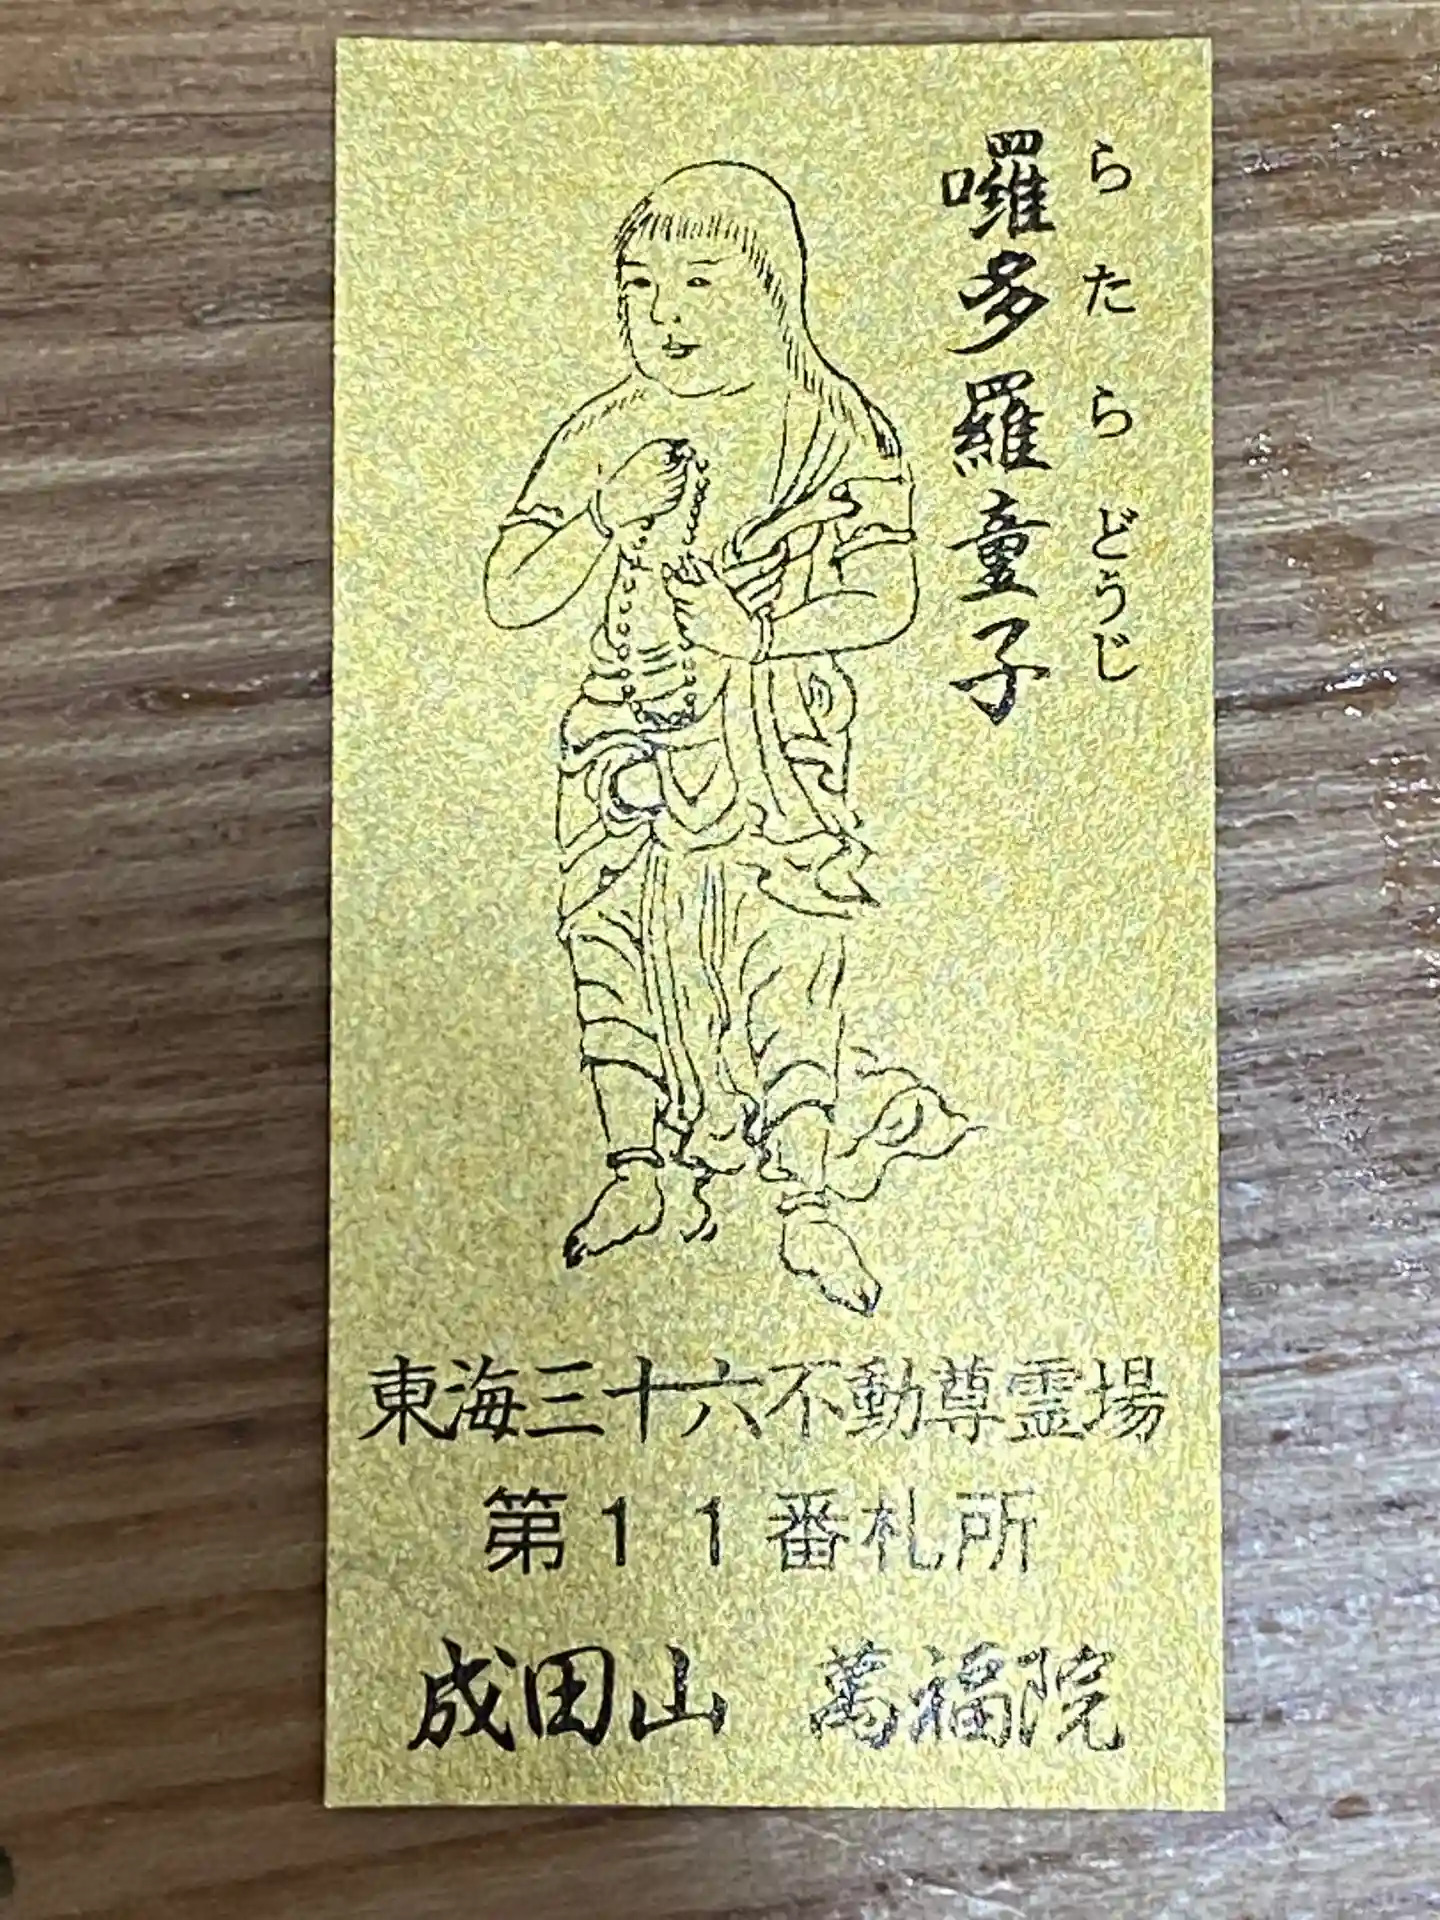 らたらどうじ
囉多羅童子
東海三十六不動尊霊場
第11番札所
成田山 萬福院